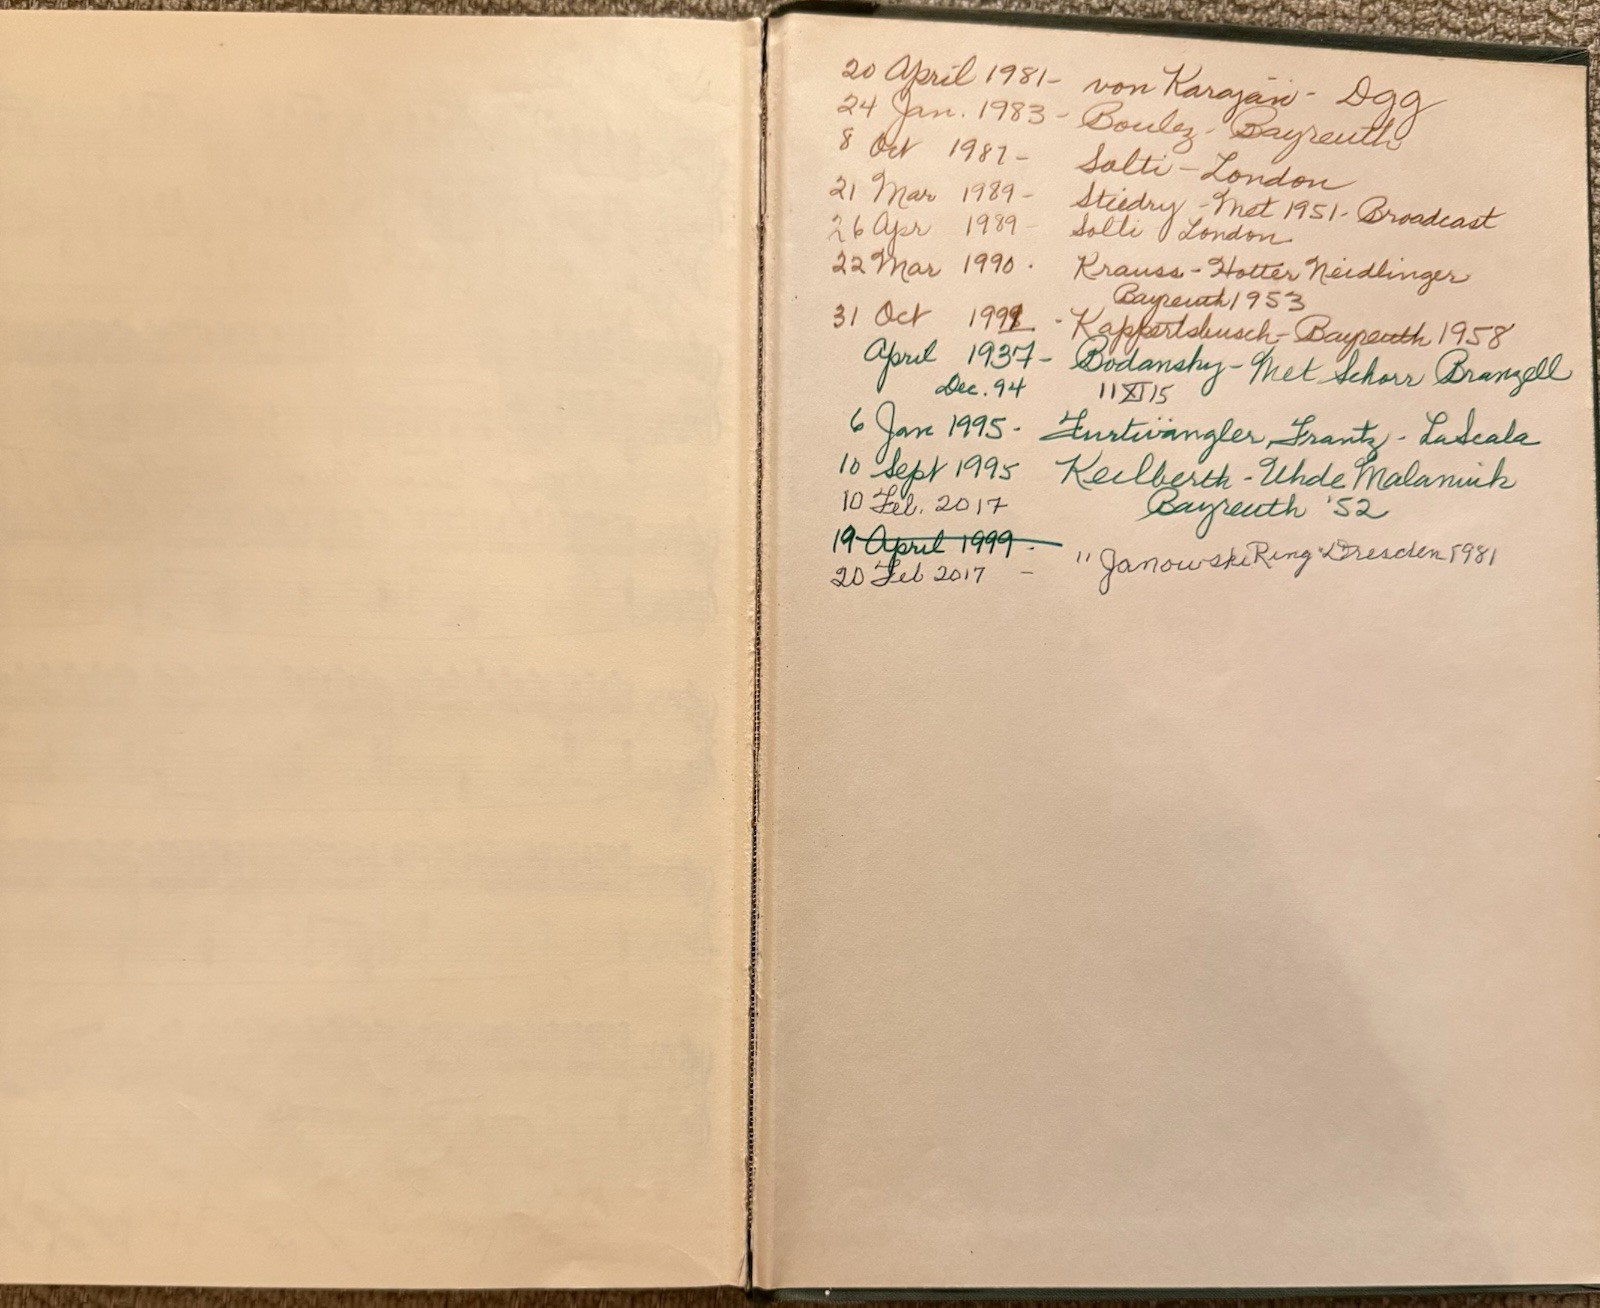 20 April 1981- von Karajan - Dgg
24 Jan. 1983 - Boulez - Bayreuth
8 Oct 1987 - Solti - London
21 Mar 1989 - Stiedry - Met 1951 - Broadcast
26 Apr 1989 - Solti London
22 Mar 1990 - Krauss - Hotter Neidlinger
Bayreuth 1953
31 Oct 1991 - Kappertsbusch - Bayreuth 1958
April 1937 - Bodansky - Met Schorr Branzell
Dec. 94 11 XI 15
6 Jan 1995 - Furtwängler, Frantz - La Scala
10 Sept 1995 Keilberth - Uhde Malaniuk
10 Feb. 2017 Bayreuth '52
19 April 1999 -
20 Feb 2017 - "Janowski Ring" Dresden 1981